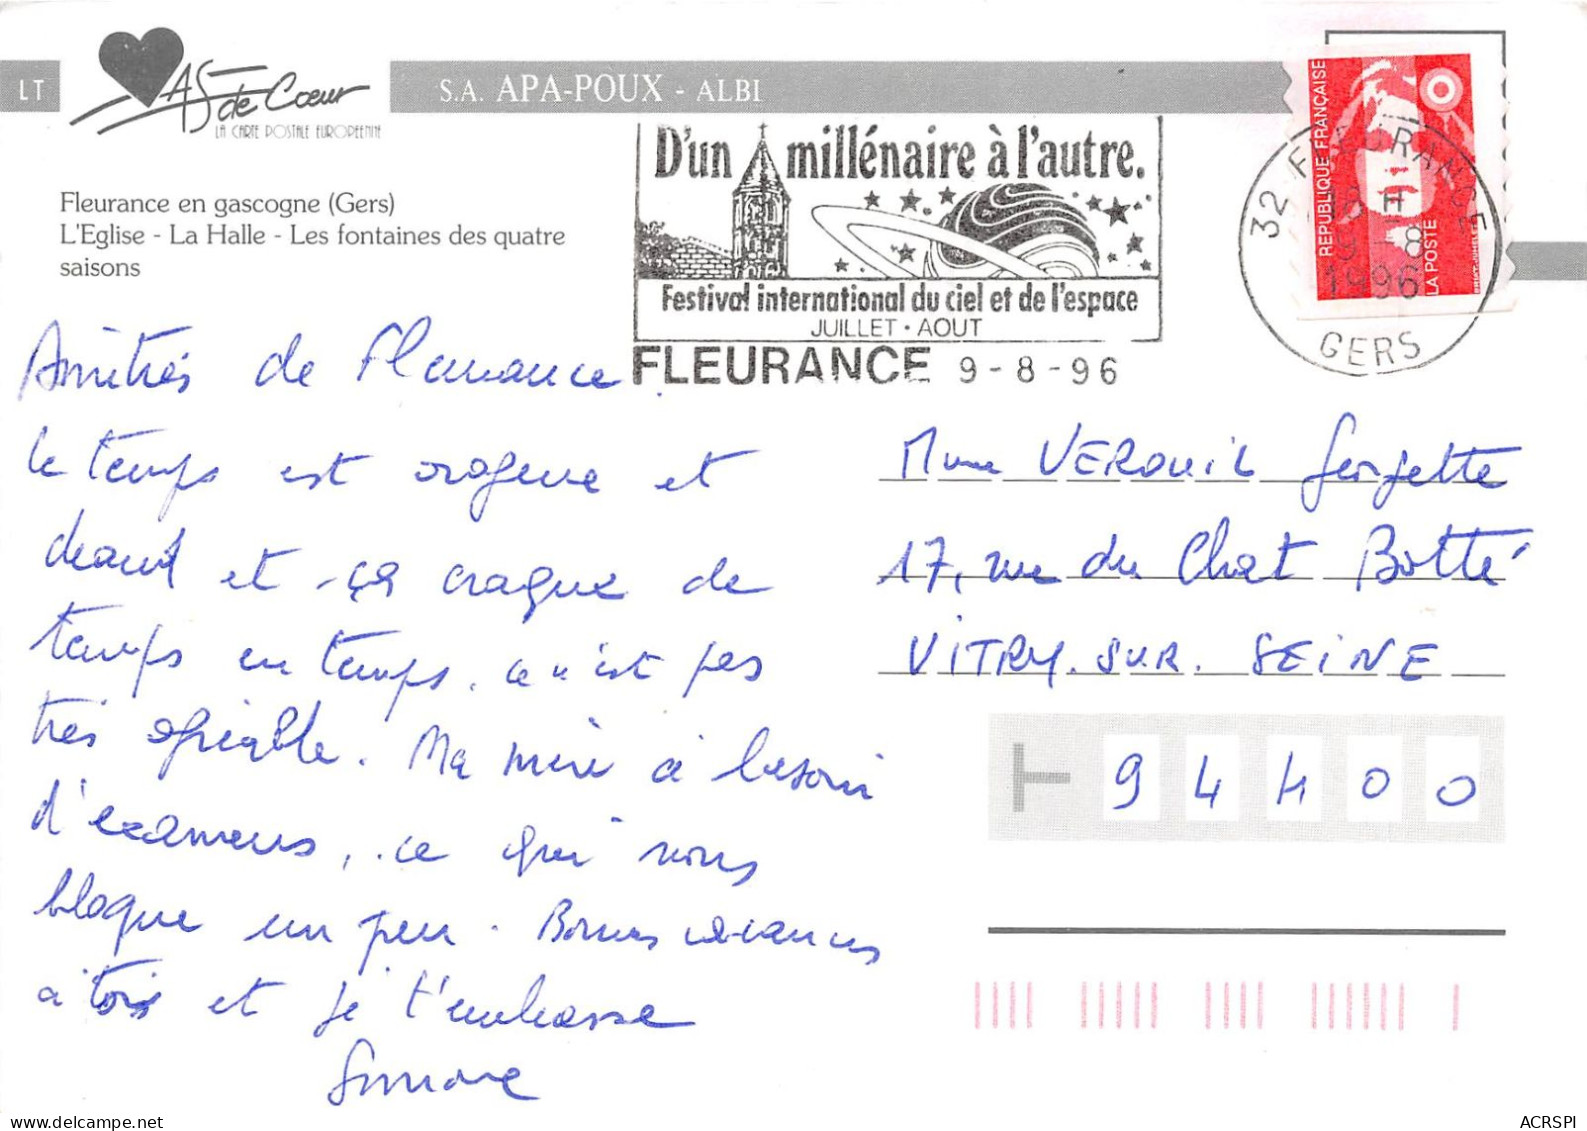 LT
As de Coeur
LA CARTE POSTALE EUROPEENNE
S.A. APA-POUX - ALBI
Fleurance en gascogne (Gers)
L'Eglise - La Halle - Les fontaines des quatre
saisons
D'un millénaire à l'autre.
Festival international du ciel et de l'espace
JUILLET • AOUT
FLEURANCE 9-8-96
REPUBLIQUE FRANÇAISE
LA POSTE
32 FLEURANCE
18 H
9 - 8
1996
GERS
Amitiés de Fleurance
le temps est orageux et
chaud et ça craque de
temps en temps, ce n'est pas
très agréable. Ma mère a besoin
d'examens, ce qui nous
bloque un peu. Bonnes vacances
à tois et je t'embrasse
Simone
Mme VEROUIL Georgette
17, rue du Chat Botté
VITRY.SUR.SEINE
94400
ACRSPI